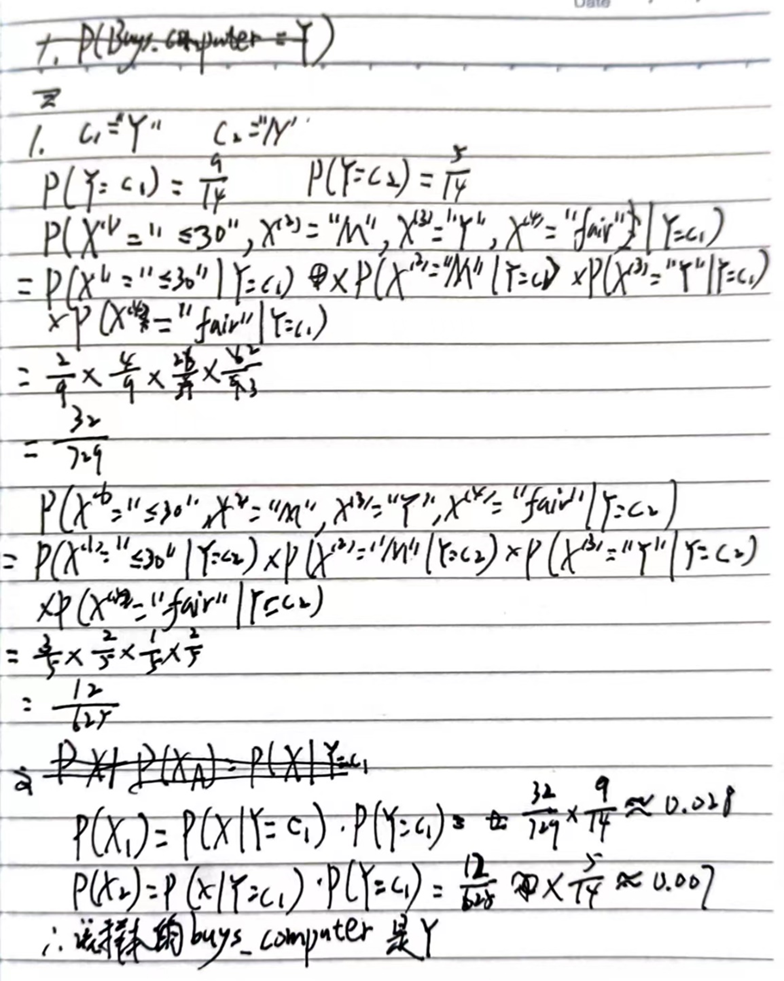 Date
1. P(Buys_computer = Y)
二
1. C₁="Y" C₂="N"
P(Y=C₁) = 9/14 P(Y=C₂) = 5/14
P(X⁽¹⁾="≤30", X⁽²⁾="M", X⁽³⁾="Y", X⁽⁴⁾="fair" | Y=C₁)
= P(X⁽¹⁾="≤30" | Y=C₁) × P(X⁽²⁾="M" | Y=C₁) × P(X⁽³⁾="Y" | Y=C₁)
× P(X⁽⁴⁾="fair" | Y=C₁)
= 2/9 × 4/9 × × 2/3
= 32/729
P(X⁽¹⁾="≤30", X⁽²⁾="M", X⁽³⁾="Y", X⁽⁴⁾="fair" | Y=C₂)
= P(X⁽¹⁾="≤30" | Y=C₂) × P(X⁽²⁾="M" | Y=C₂) × P(X⁽³⁾="Y" | Y=C₂)
× P(X⁽⁴⁾="fair" | Y=C₂)
= 3/5 × 2/5 × 1/5 × 2/5
= 12/625
P(X₁) = P(X|Y=C₁)·P(Y=C₁) = 32/729 × 9/14 ≈ 0.028
P(X₂) = P(X|Y=C₁)·P(Y=C₁) = 12/625 × 5/14 ≈ 0.007
∴ 该样本的 buys_computer 是 Y